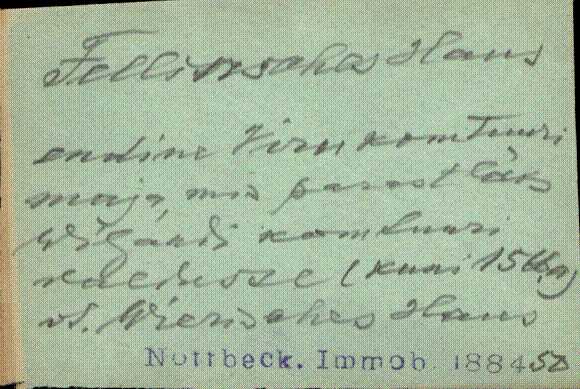 Fellinsches Haus
endine Viru komtuuri
maja, mis pärast läks
komtuuri
valdusse (kuni 15
vt. Wierisches Haus
Nottbeck. Immob. 1884 50